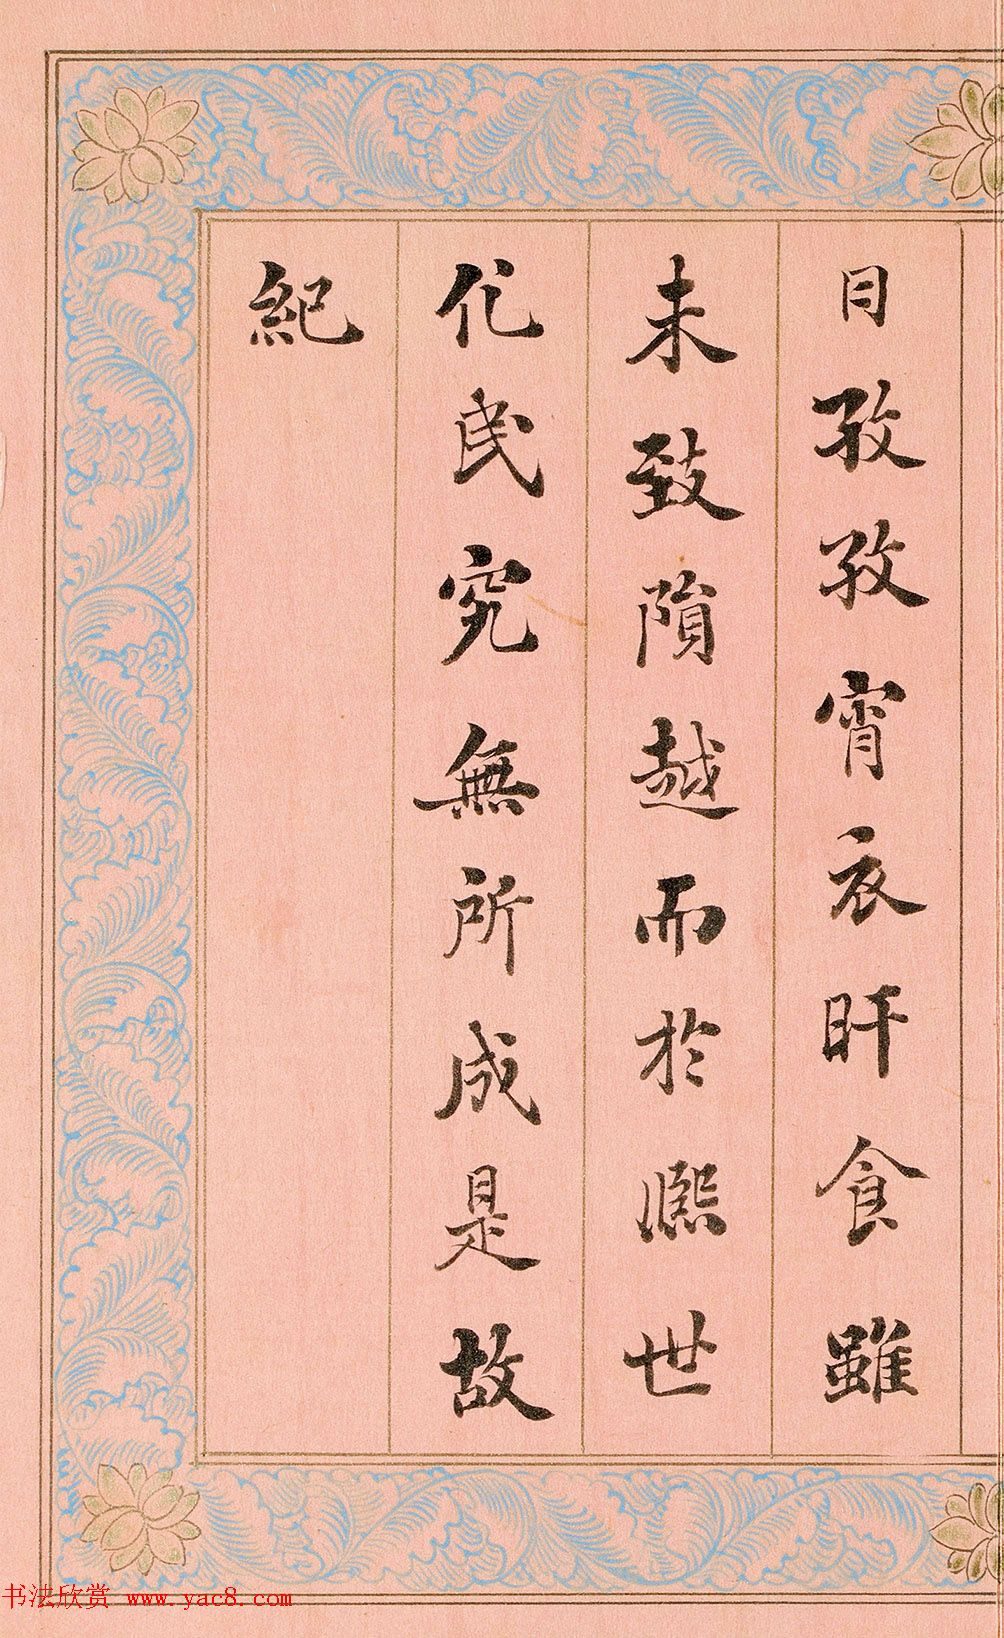 日孜孜宵衣旰食雖
未致隕越而於熙世
化民究無所成是故
紀
书法欣赏 www.yac8.com